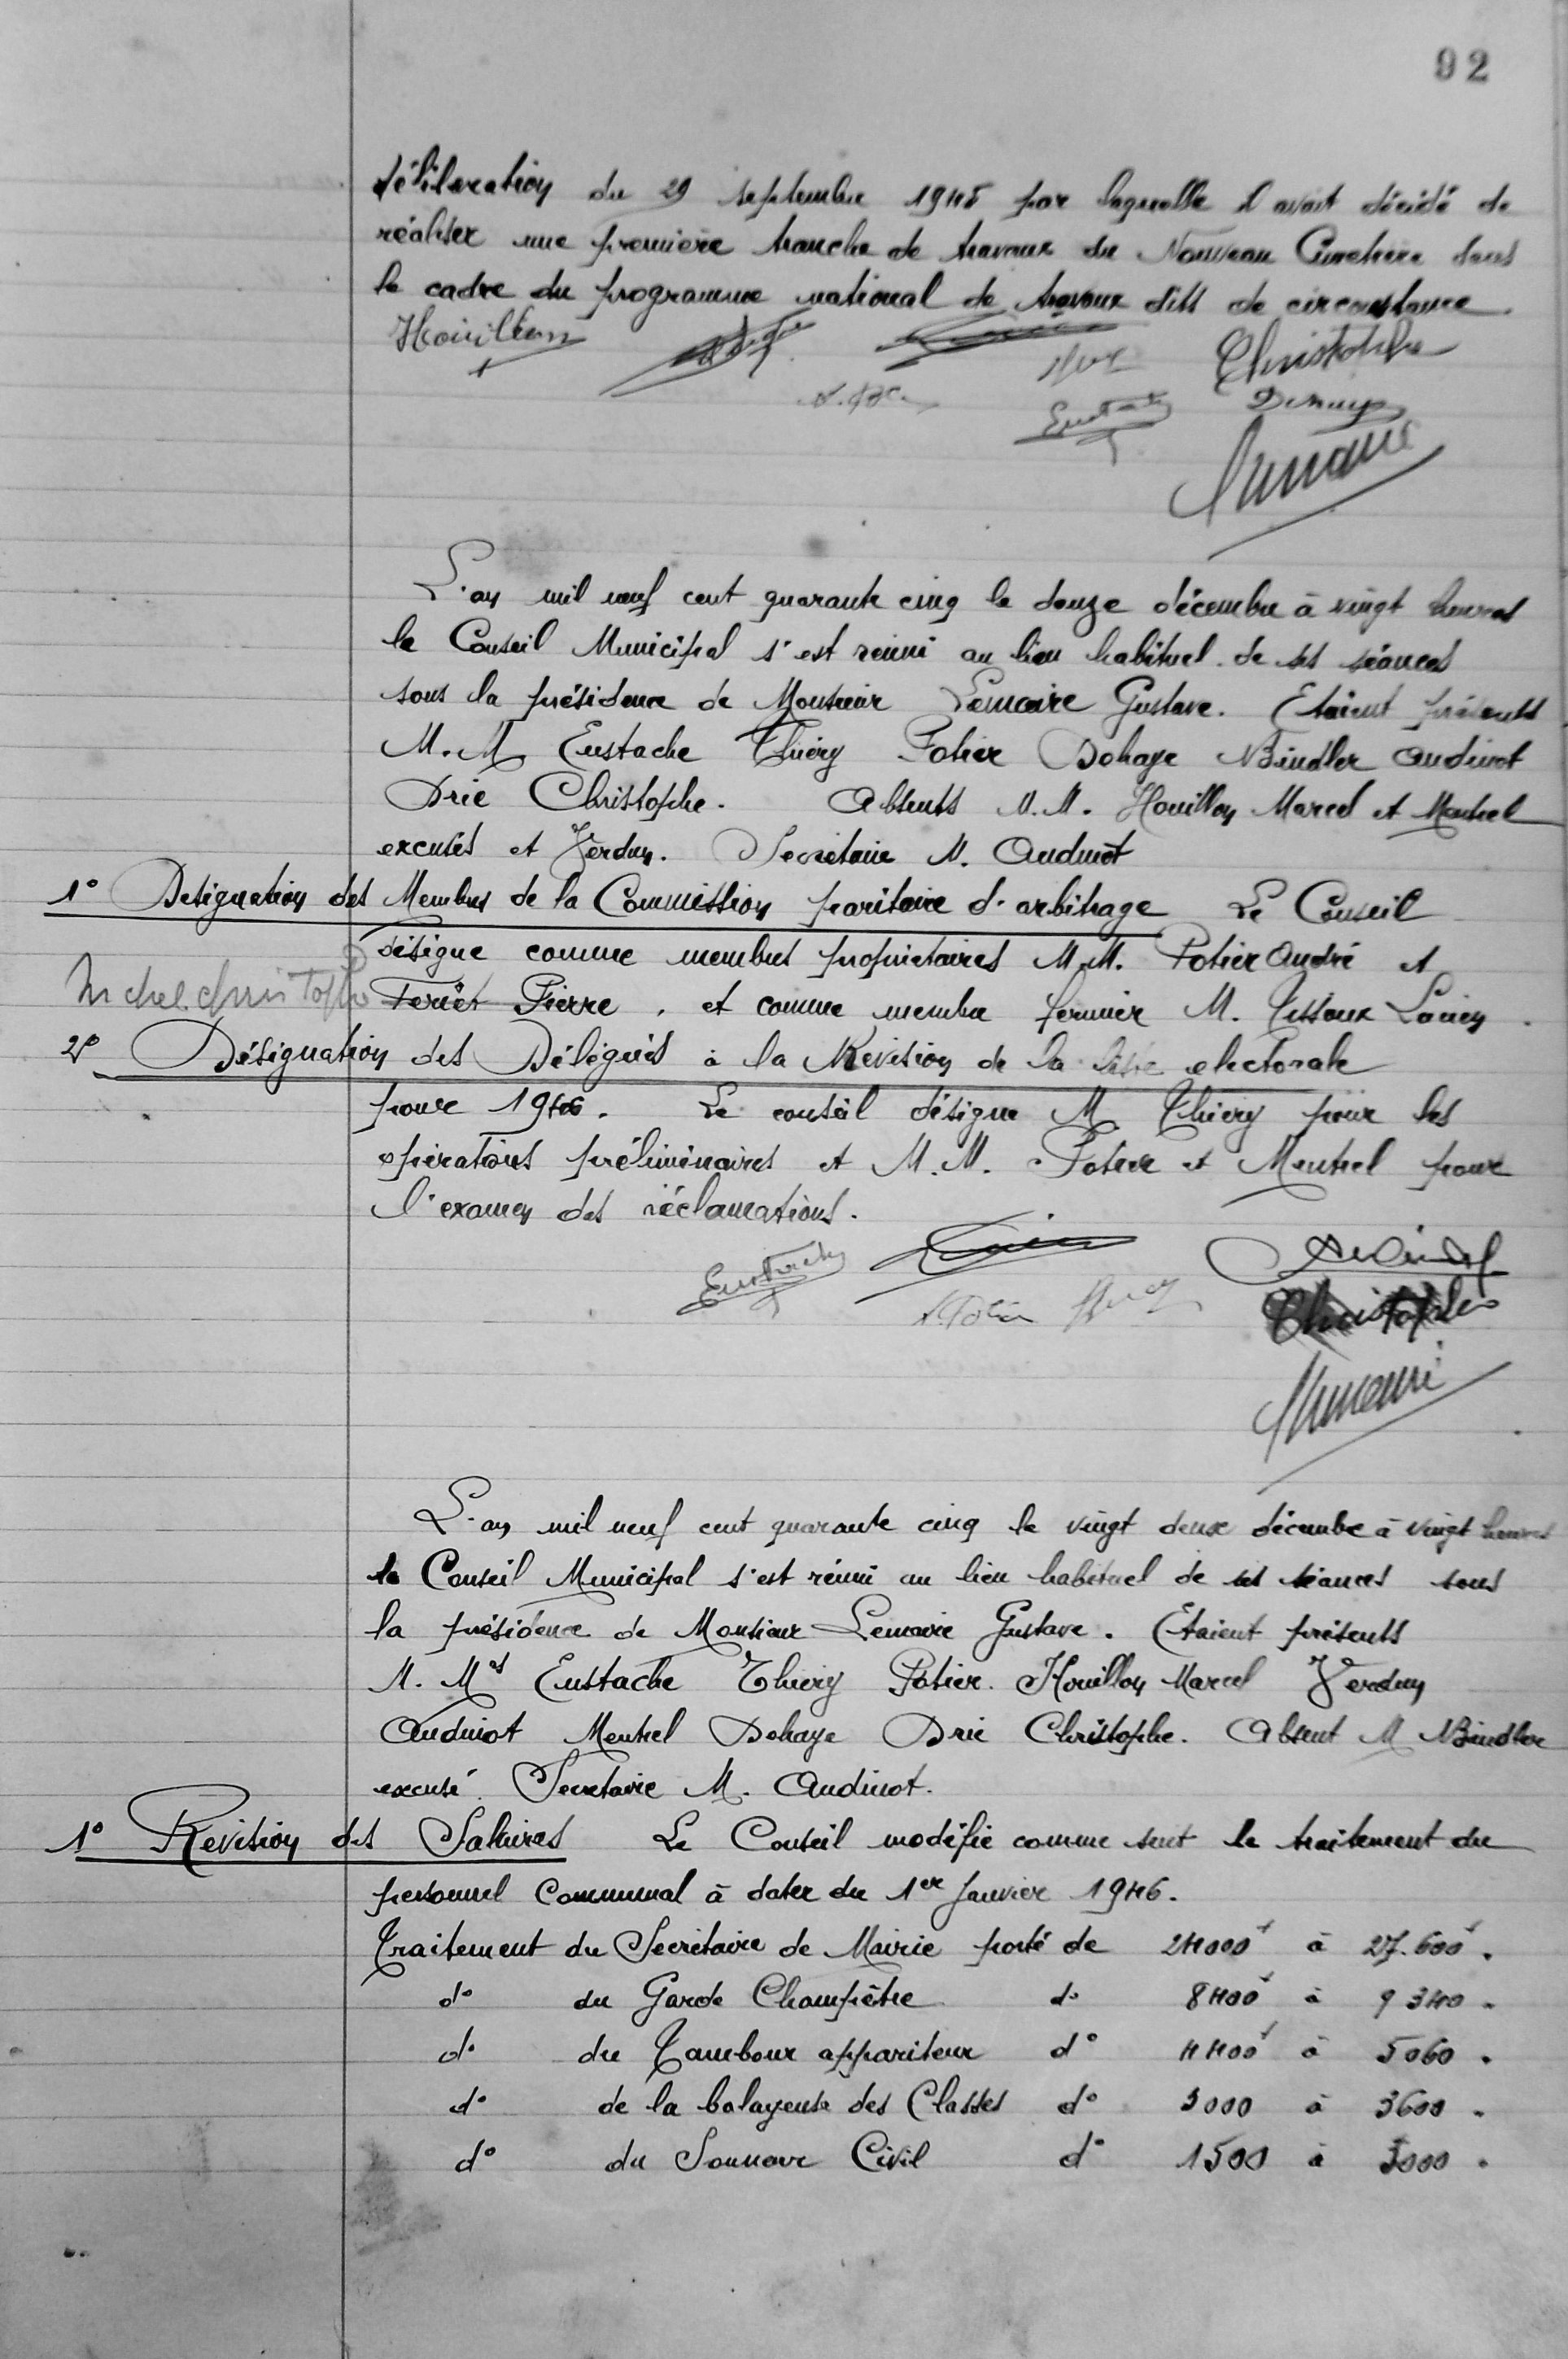 92
délibération du 29 septembre 1945 par laquelle il avait décidé de
réaliser une première tranche de travaux du Nouveau Cimetière dans
le cadre du programme national de travaux dits de circonstance.
Houillon
Christophe
Eustache
L'an mil neuf cent quarante cinq le douze décembre à vingt heures
le Conseil Municipal s'est réuni au lieu habituel de ses séances
sous la présidence de Monsieur Lemaire Gustave. Etaient présents
M.M Eustache Thiéry Potier Dehaye Bindler Audinot
Drié Christophe. Absents M.M. Houillon Marcel et Mentrel
excusés et Verdun. Secrétaire M. Audinot
1° Désignation des Membres de la Commission paritaire d'arbitrage Le Conseil
désigne comme membres propriétaires M.M. Potier André et
Michel Christophe Feriet Pierre, et comme membre fermier M. Tissoux Lucien.
2° Désignation des Délégués à la Révision de la liste electorale
pour 1946. Le conseil désigne M Thiery pour les
opérations préliminaires et M.M. Potier et Mentrel pour
l'examen des réclamations.
Eustache
A. Potier
Christophe
L'an mil neuf cent quarante cinq le vingt deux décembre à vingt heures
le Conseil Municipal s'est réuni au lieu habituel de ses séances sous
la présidence de Monsieur Lemaire Gustave. Etaient présents
M. Mrs Eustache Thiery Potier. Houillon Marcel Verdun
Audinot Mentrel Dehaye Drié Christophe. Absent M Bindler
excusé. Secretaire M. Audinot.
1° Revision des Salaires Le Conseil modifie comme suit le traitement du
personnel Communal à dater du 1er Janvier 1946.
Traitement du Secrétaire de Mairie porté de 24000f à 27.600f.
d° du Garde Champêtre d° 8400f à 9340.
d° du Tambour appariteur d° 4400f à 5060.
d° de la balayeuse des Classes d° 3000 à 3600.
d° du Sonneur Civil d° 1500 à 3000.